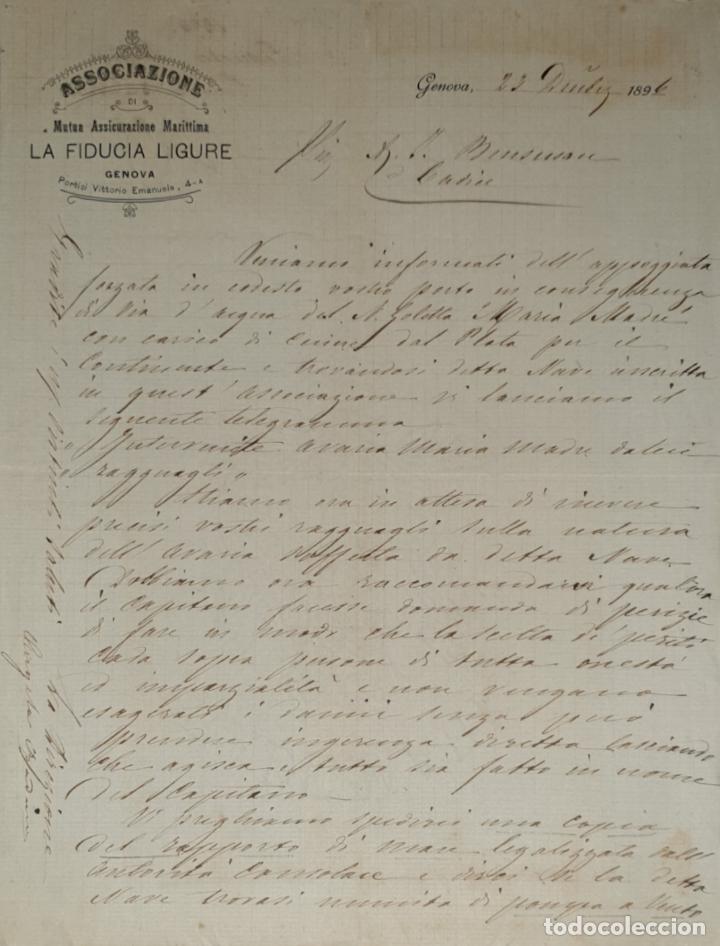 ASSOCIAZIONE
DI
Mutua Assicurazione Marittima
LA FIDUCIA LIGURE
GENOVA
Portici Vittorio Emanuele, 4-A
Genova, 23 1896
A. J. Bensusan
Cadice
Veniamo informati dell'appoggiata
forzata in codesto vostro porto in conseguenza
di via d'acqua del N. Goletta "Maria Madre"
con carico di dal Plata per il
Continente e trovandosi detta Nave inscritta
in quest'associazione vi lanciamo il
seguente telegramma
avaria Maria Madre dateci
ragguagli"
Stiamo ora in attesa di ricevere
precisi vostri ragguagli sulla natura
dell'avaria sofferta da detta Nave.
Dobbiamo ora raccomandarvi qualora
il Capitano facesse domanda di perizie
di fare in modo che la scelta di periti
cada sopra persone di tutta onestà
ed imparzialità e non vengano
esagerati i danni senza però
prendere ingerenza diretta lasciando
che agisca e tutto sia fatto in nome
del Capitano
Vi preghiamo spedirci una copia
del rapporto di mare legalizzata dall'
autorità Consolare e dirci se la detta
Nave trovasi munita di pompa a vento
Gradite i saluti
La Direzione
todocoleccion
todocoleccion.net